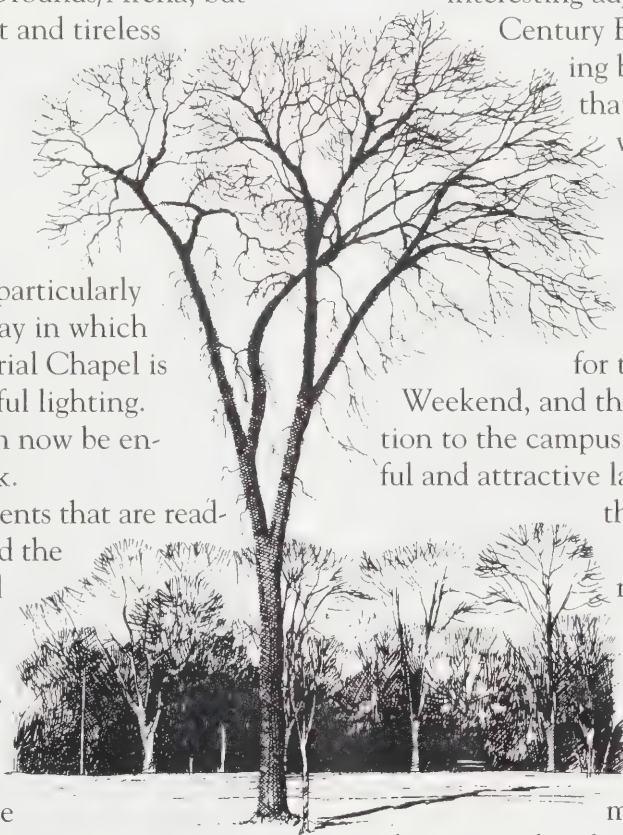 Grounds/Arena, but
t and tireless
particularly
ay in which
rial Chapel is
ful lighting.
n now be en-
k.
ents that are read-
d the
e
interesting
Century
ing b
tha
for t
Weekend, and th
tion to the campus
ful and attractive la
th
m